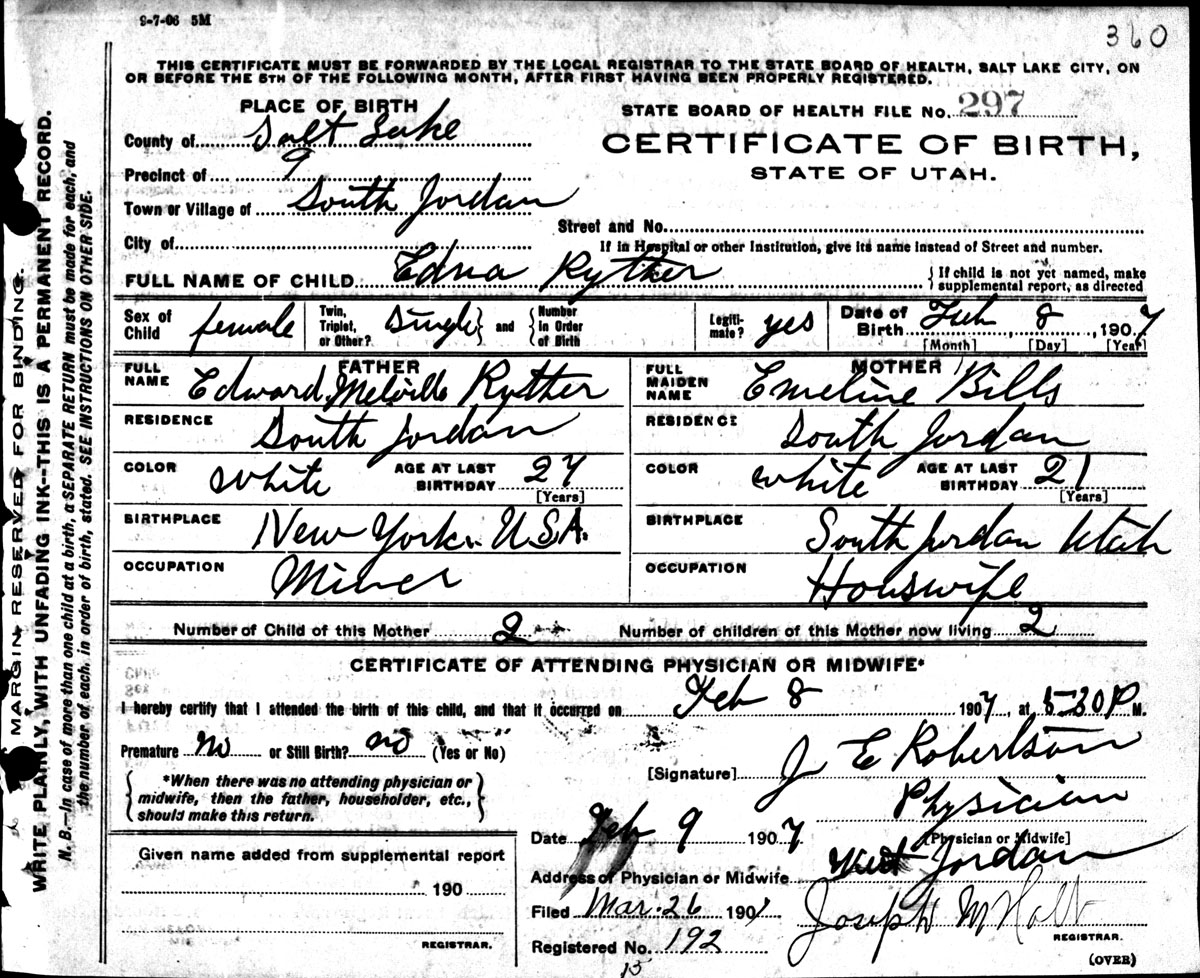 9-7-06 5M
360
THIS CERTIFICATE MUST BE FORWARDED BY THE LOCAL REGISTRAR TO THE STATE BOARD OF HEALTH, SALT LAKE CITY, ON
OR BEFORE THE 5TH OF THE FOLLOWING MONTH, AFTER FIRST HAVING BEEN PROPERLY REGISTERED.
PLACE OF BIRTH
STATE BOARD OF HEALTH FILE No. 297
County of Salt Lake
CERTIFICATE OF BIRTH,
STATE OF UTAH.
Precinct of 9
Town or Village of South Jordan
Street and No.
City of
If in Hospital or other Institution, give its name instead of Street and number.
FULL NAME OF CHILD Edna Ryther
{If child is not yet named, make
supplemental report, as directed
Sex of Child female
Twin, Triplet, or Other? Single} and {Number In Order of Birth
Legiti- mate? yes
Date of Birth Feb, 8, 1907
[Month] [Day] [Year]
FATHER
FULL NAME Edward Melville Ryther
RESIDENCE South Jordan
COLOR white AGE AT LAST BIRTHDAY 27
[Years]
BIRTHPLACE New York. U.S.A.
OCCUPATION Miner
MOTHER
FULL MAIDEN NAME Emeline Bills
RESIDENCE South Jordan
COLOR white AGE AT LAST BIRTHDAY 21
[Years]
BIRTHPLACE South Jordan Utah
OCCUPATION Houswife
Number of Child of this Mother 2 Number of children of this Mother now living 2
CERTIFICATE OF ATTENDING PHYSICIAN OR MIDWIFE*
I hereby certify that I attended the birth of this child, and that it occurred on Feb 8 1907, at 5-30 P M.
Premature no or Still Birth? no (Yes or No)
[Signature] J E Robertson
{*When there was no attending physician or
midwife, then the father, householder, etc.,
should make this return.}
Physician
[Physician or Midwife]
Date Feb 9 1907
Address of Physician or Midwife West Jordan
Given name added from supplemental report
190
REGISTRAR.
Filed Mar. 26 1907
Joseph M Holt
REGISTRAR.
Registered No. 192
15
(OVER)
MARGIN RESERVED FOR BINDING.
WRITE PLAINLY, WITH UNFADING INK--THIS IS A PERMANENT RECORD.
N. B.—In case of more than one child at a birth, a SEPARATE RETURN must be made for each, and
the number of each, in order of birth, stated. SEE INSTRUCTIONS ON OTHER SIDE.